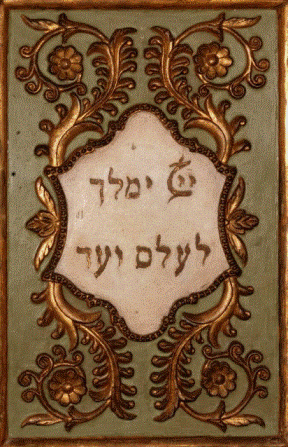 יי ימלך
לעלם ועד